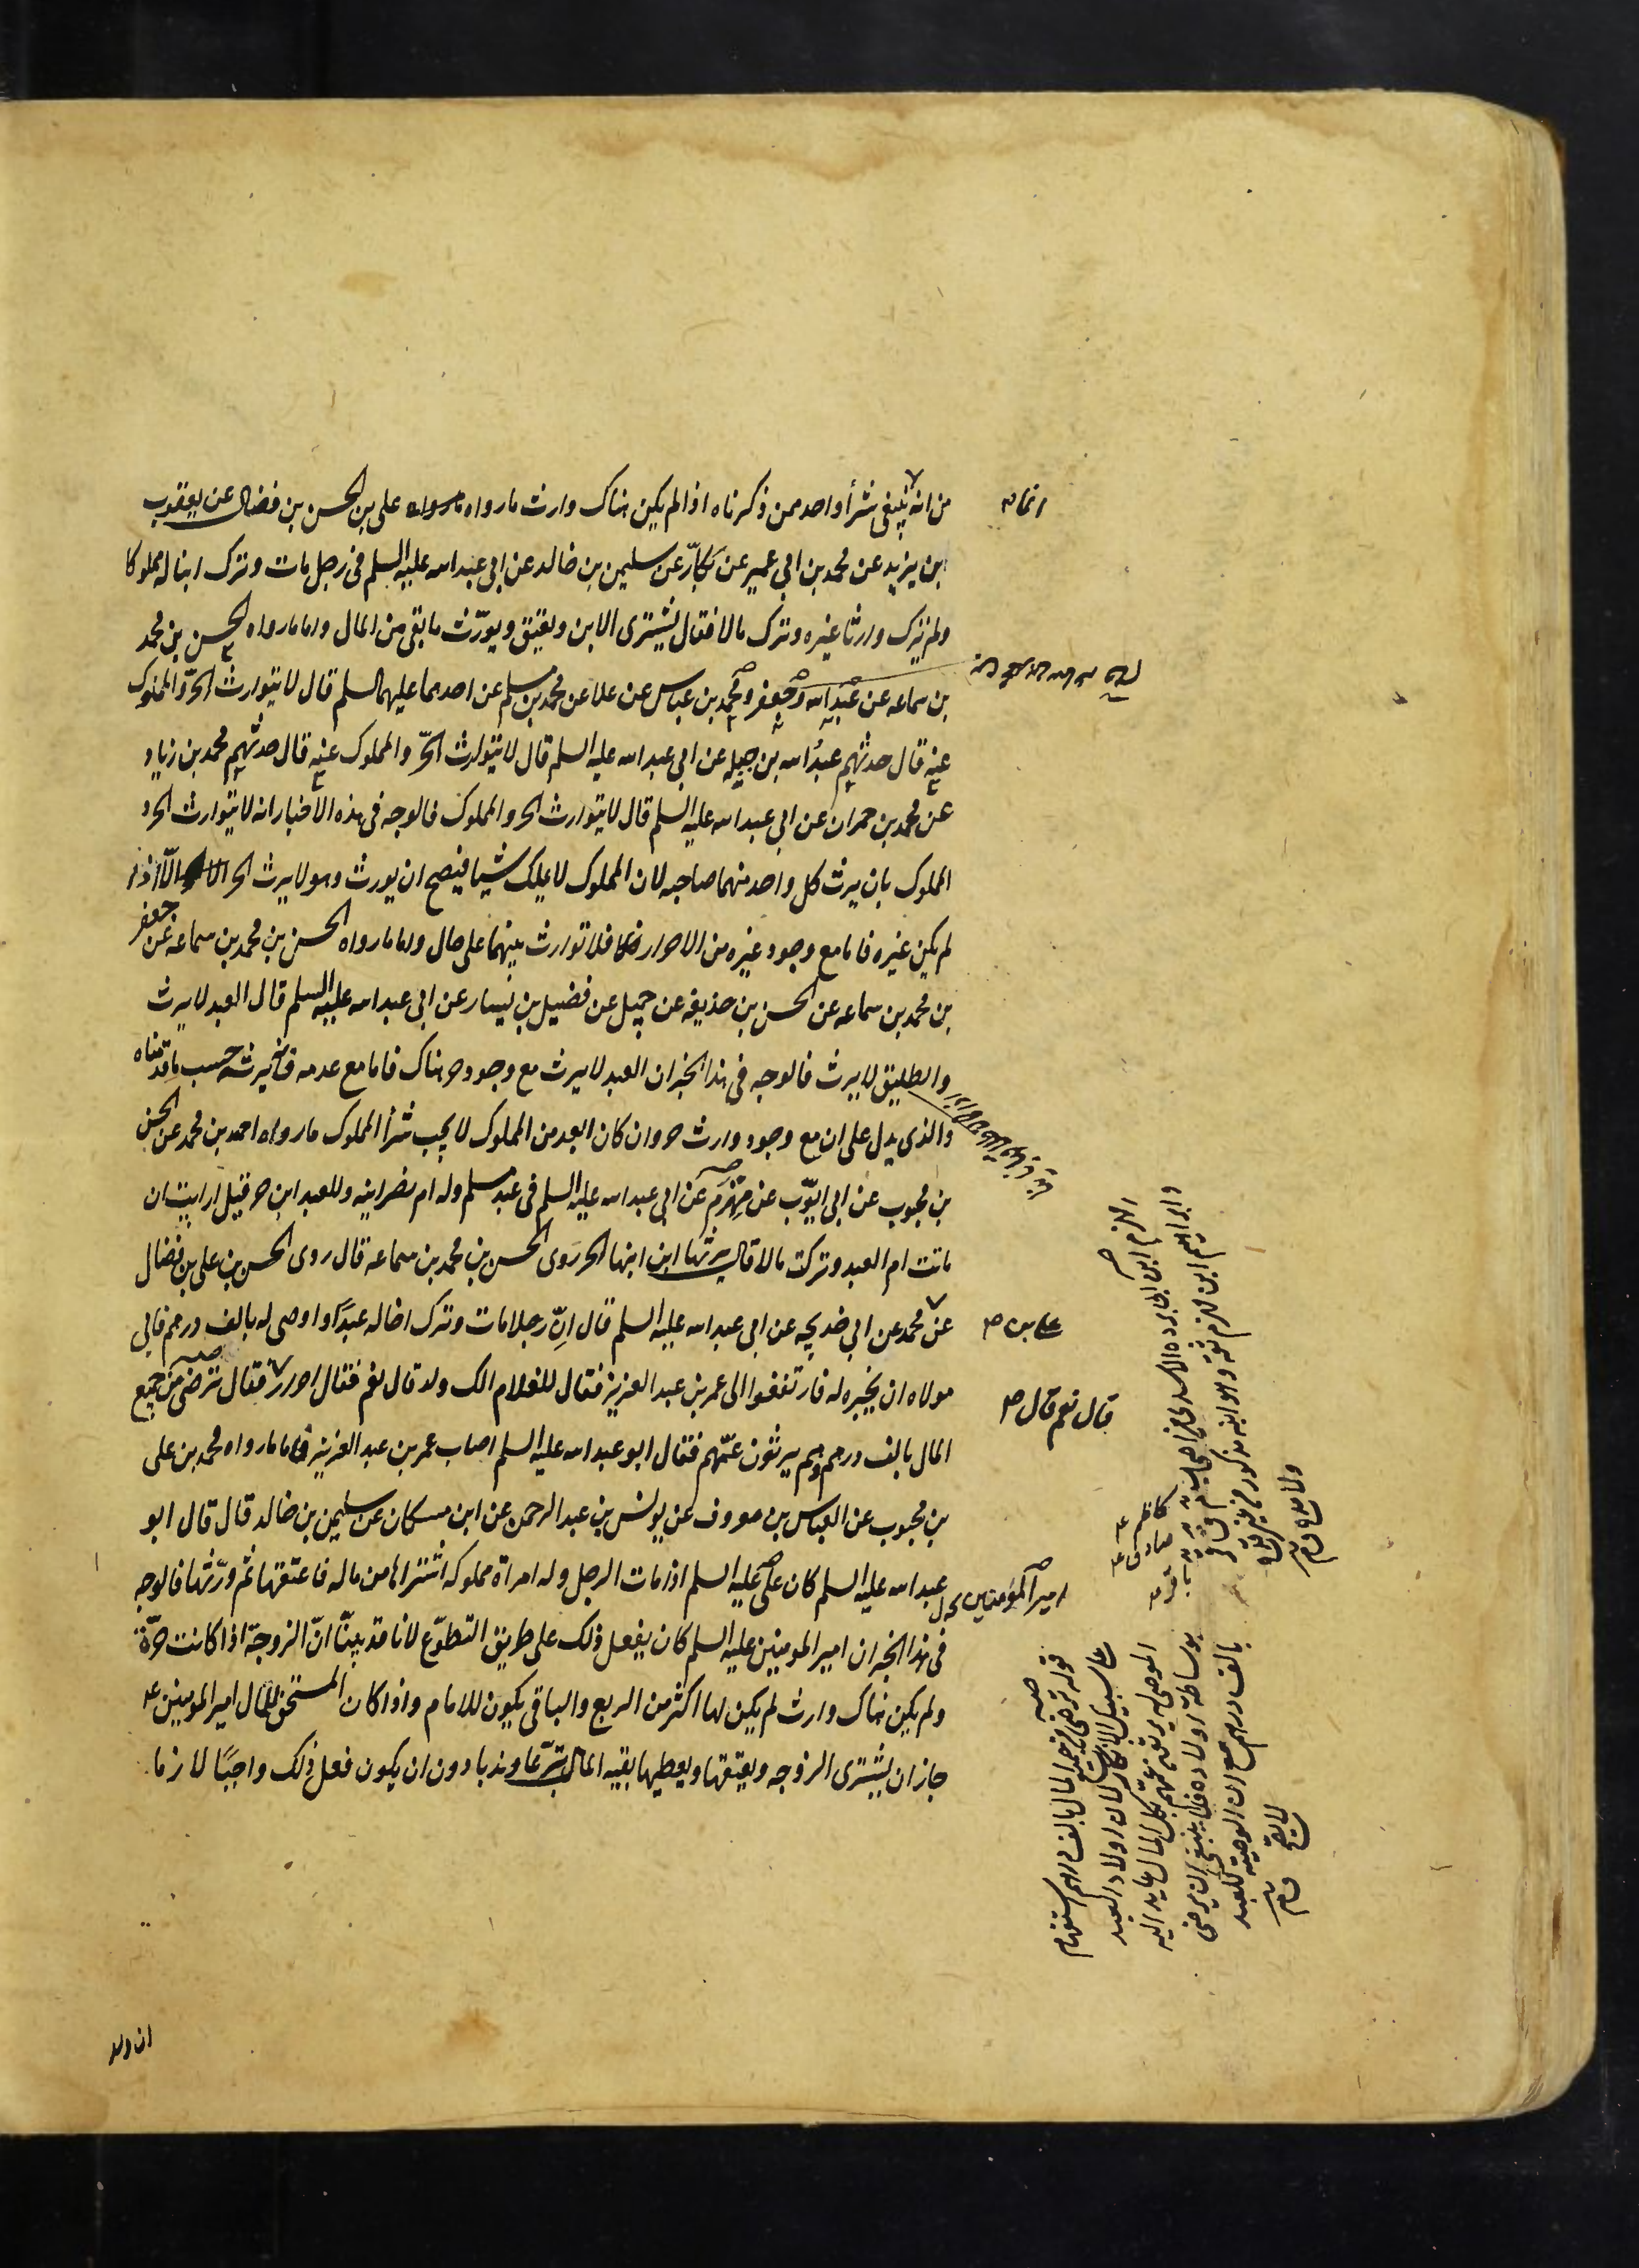 من انه ينبغى شرأ واحد ممن ذكرناه اذا لم يكن هناك وارث ما رواه على بن الحسن بن فضال عن يعقوب
بن يزيد عن محمد بن ابي عمير عن بكّار عن سليمن بن خالد عن ابي عبد الله عليه السلم في رجل مات وترك ابنا له مملوكا
ولم يترك وارثا غيره وترك مالا فقال يشترى الابن ويعتق ويورّث ما بقى من المال واما ما رواه الحسن بن محمد
بن سماعه عن عبد الله وجعفر ومحمد بن عباس عن علا عن محمد بن مسلم عن احدهما عليهما السلم قال لا يتوارث الحرّ والمملوك
عنه قال حدثهم عبد الله بن جبله عن ابي عبد الله عليه السلم قال لا يتوارث الحرّ والمملوك عنه قال حدثهم محمد بن زياد
عن محمد بن حمران عن ابي عبد الله عليه السلم قال لا يتوارث الحر والمملوك فالوجه في هذه الاخبار انه لا يتوارث الحر و
المملوك بان يرث كل واحد منهما صاحبه لان المملوك لا يملك شيا فيصح ان يورث وهو لا يرث الحر الّا اذا
لم يكن غيره فاما مع وجود غيره من الاحرار فلا توارث بينهما على حال واما ما رواه الحسن بن محمد بن سماعه عن جعفر
بن محمد بن سماعه عن الحسن بن حذيفه عن جميل عن فضيل بن يسار عن ابي عبد الله عليه السلم قال العبد لا يرث
والطليق لا يرث فالوجه في هذا الخبر ان العبد لا يرث مع وجود حر هناك فاما مع عدمه فانه يرثه حسب ما قدمناه
والذى يدل على ان مع وجود وارث حر وان كان ابعد من المملوك لا يجب شرأ المملوك ما رواه احمد بن محمد عن الحسن
بن محبوب عن ابي ايّوب عن مهزم عن ابي عبد الله عليه السلم في عبد مسلم وله ام نصرانيه وللعبد ابن حر قيل ارايت ان
ماتت ام العبد وتركت مالا قال يرثها ابن ابنها الحر روى الحسن بن محمد بن سماعه قال روى الحسن بن علي بن فضال
عن محمد عن ابي خديجه عن ابي عبد الله عليه السلم قال انّ رجلا مات وترك اخا له عبدًا واوصى له بالف درهم فابي
مولاه ان يجيره له فارتفعوا الى عمر بن عبد العزيز فقال للغلام الك ولد قال نعم فقال احرار فقال ترضى من جميع
المال بالف درهم وهم يرثون عمّهم فقال ابو عبد الله عليه السلم اصاب عمر بن عبد العزيز فاما ما رواه محمد بن على
بن محبوب عن العباس بن معروف عن يونس بن عبد الرحمن عن ابن مسكان عن سليمن بن خالد قال قال ابو
عبد الله عليه السلم كان على عليه السلم اذا مات الرجل وله امراة مملوكه اشتراها من ماله فاعتقها ثم ورّثها فالوجه
في هذا الخبر ان امير المومنين عليه السلم كان يفعل ذلك على طريق التطوّع لانا قد بينّا انّ الزوجة اذا كانت حرّة
ولم يكن هناك وارث لم يكن لها اكثر من الربع والباقى يكون للامام واذا كان المستحق للمال امير المومنين ع
جاز ان يشترى الزوجه ويعتقها ويعطيها بقيه المال تبرّعا وندبا دون ان يكون فعل ذلك واجبًا لازما
قال نعم قال
امير المؤمنين
قوله ترضى من جميع المال بالف درهم استفهام
على سبيل الانكار لان اولاد العبد
الموصى له يرثون عمهم بكل المال عايد اليه
بوساطة اولاده فلا ينبغى ان يرضى
بالف درهم مع ان الوصية للعبد
لا يصح